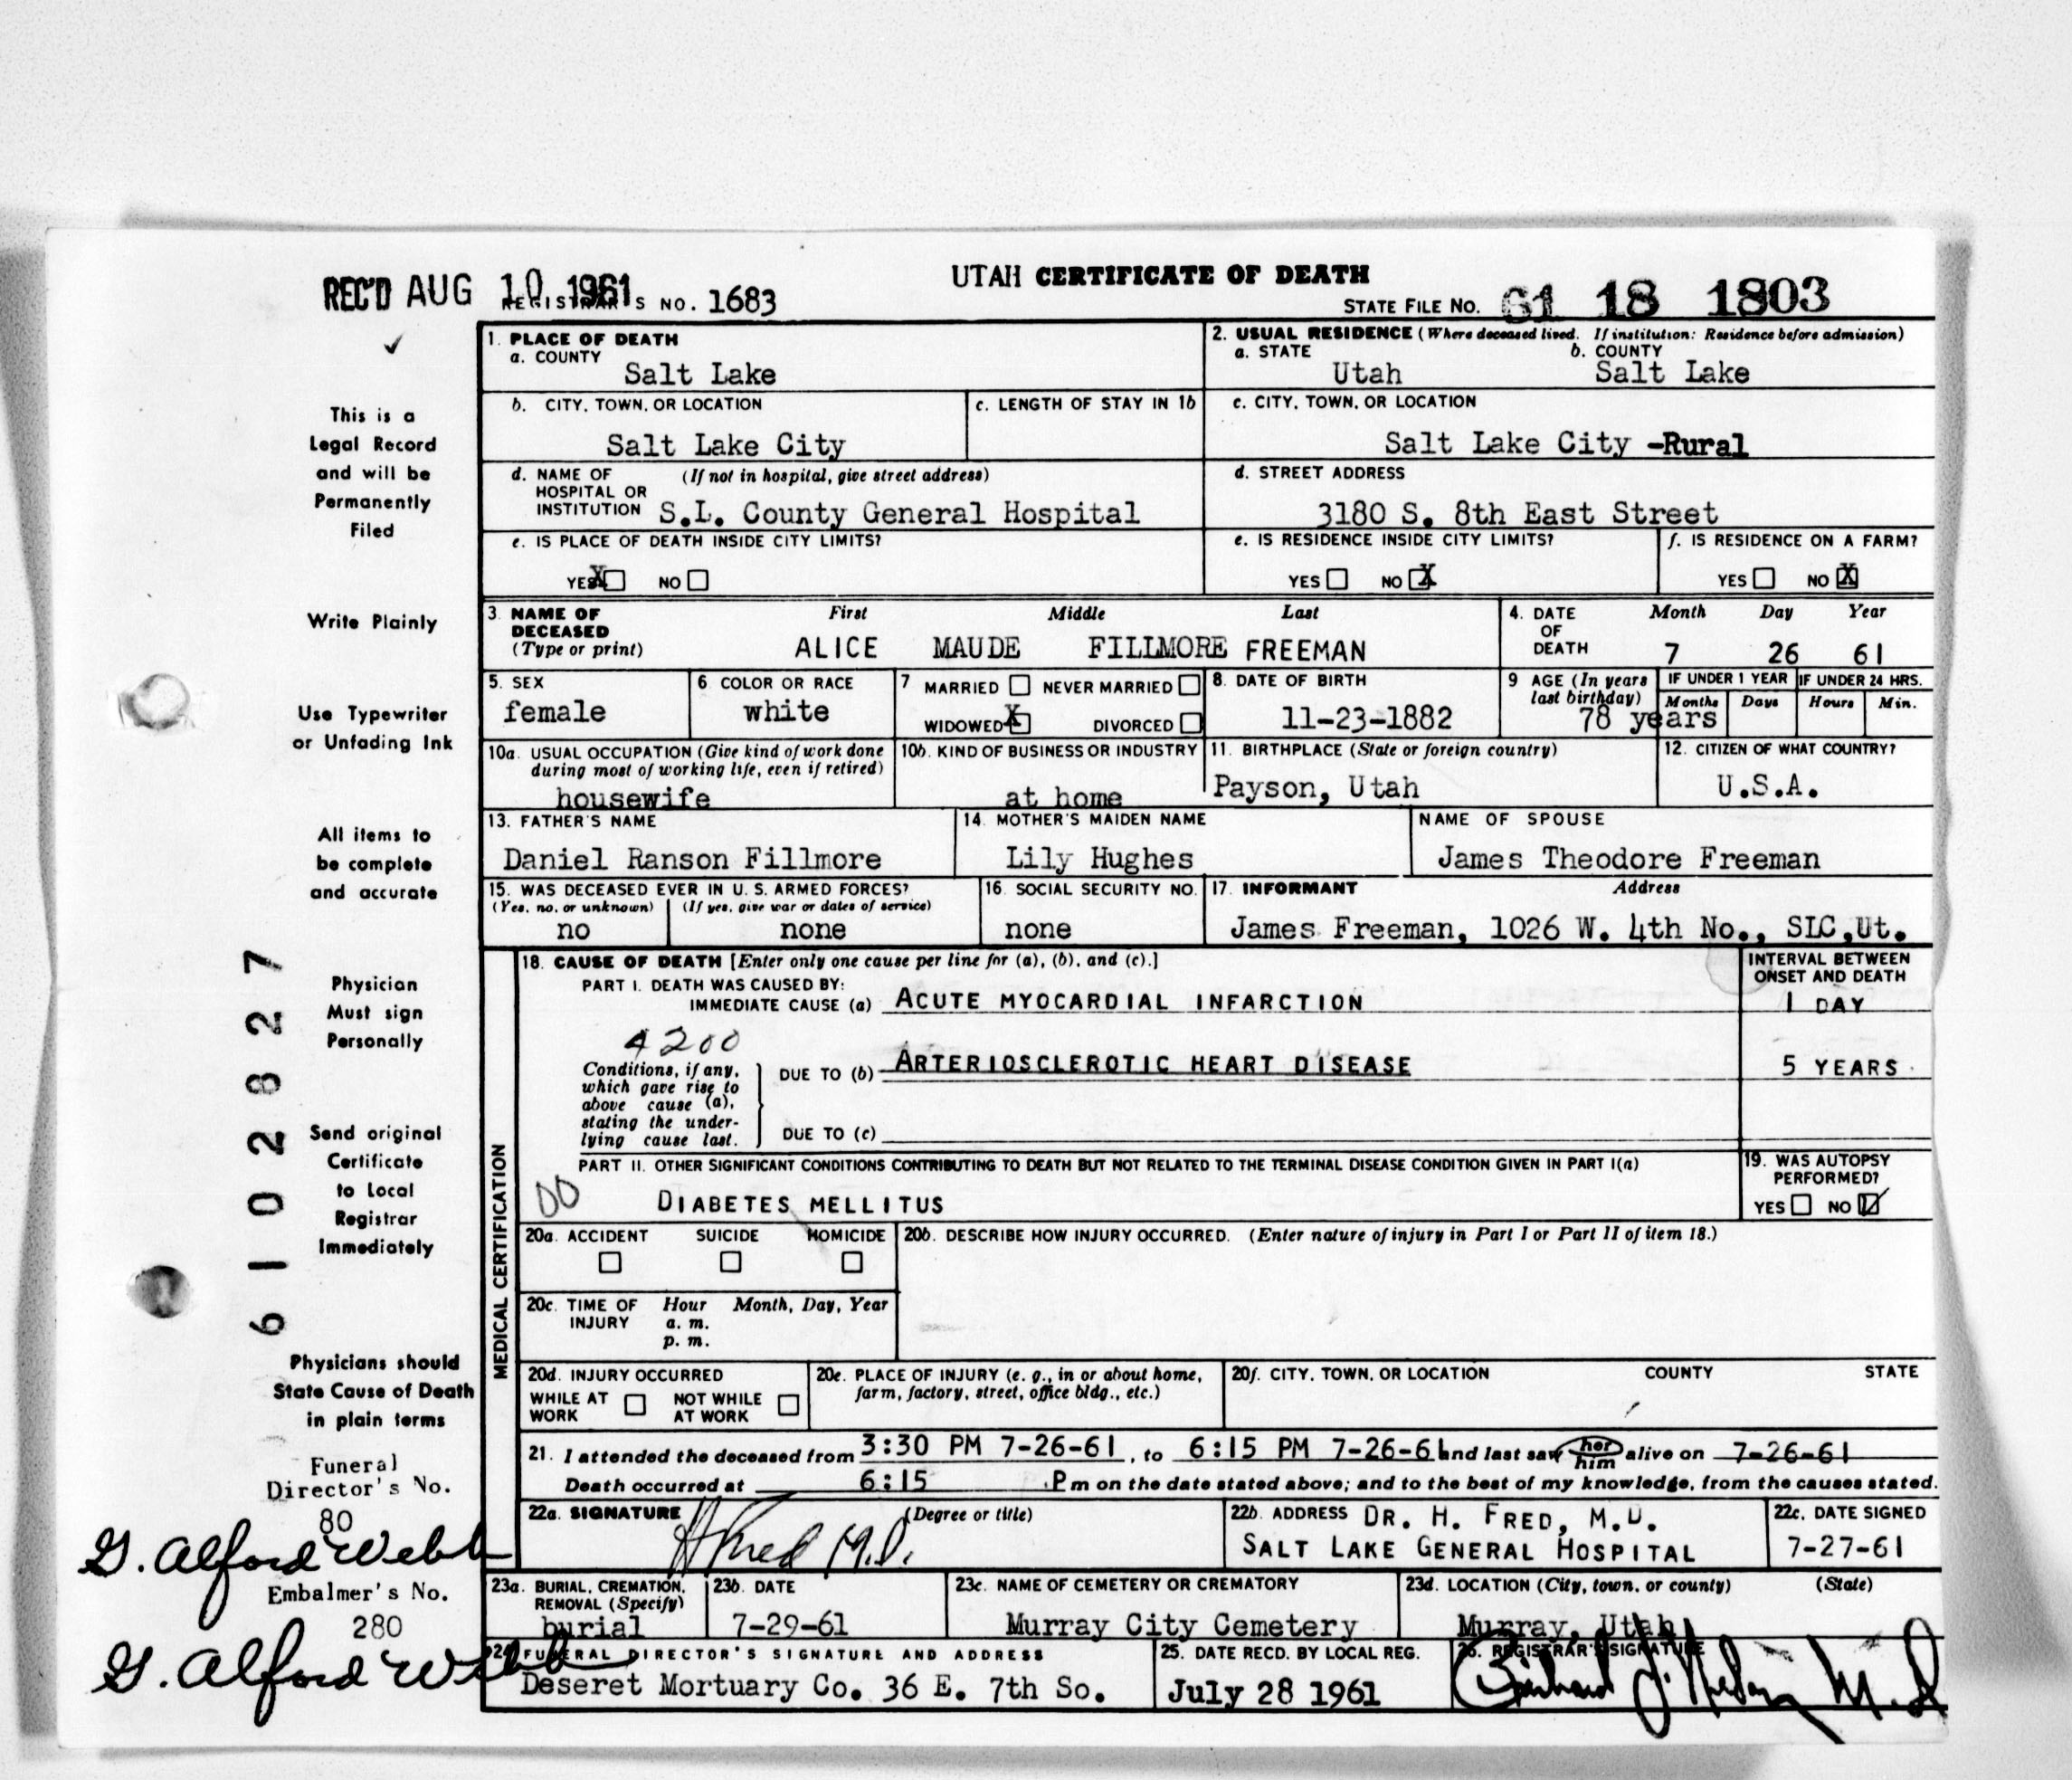 UTAH CERTIFICATE OF DEATH
REC'D AUG 10 1961
REGISTRAR'S NO. 1683
STATE FILE NO. 61 18 1803
This is a
Legal Record
and will be
Permanently
Filed
Write Plainly
Use Typewriter
or Unfading Ink
All items to
be complete
and accurate
Physician
Must sign
Personally
Send original
Certificate
to Local
Registrar
Immediately
Physicians should
State Cause of Death
in plain terms
61 02827
Funeral
Director's No.
80
G. Alford Webb
Embalmer's No.
280
G. Alford Webb
1. PLACE OF DEATH
a. COUNTY
Salt Lake
2. USUAL RESIDENCE (Where deceased lived. If institution: Residence before admission)
a. STATE
Utah
b. COUNTY
Salt Lake
b. CITY, TOWN, OR LOCATION
Salt Lake City
c. LENGTH OF STAY IN 1b
c. CITY, TOWN, OR LOCATION
Salt Lake City -Rural
d. NAME OF (If not in hospital, give street address)
HOSPITAL OR
INSTITUTION S.L. County General Hospital
d. STREET ADDRESS
3180 S. 8th East Street
e. IS PLACE OF DEATH INSIDE CITY LIMITS?
YES X NO
e. IS RESIDENCE INSIDE CITY LIMITS?
YES NO X
f. IS RESIDENCE ON A FARM?
YES NO X
3. NAME OF DECEASED (Type or print)
First Middle Last
ALICE MAUDE FILLMORE FREEMAN
4. DATE OF DEATH
Month Day Year
7 26 61
5. SEX
female
6 COLOR OR RACE
white
7 MARRIED NEVER MARRIED
WIDOWED X DIVORCED
8. DATE OF BIRTH
11-23-1882
9 AGE (In years last birthday)
78 years
IF UNDER 1 YEAR
Months Days
IF UNDER 24 HRS.
Hours Min.
10a. USUAL OCCUPATION (Give kind of work done
during most of working life, even if retired)
housewife
10b. KIND OF BUSINESS OR INDUSTRY
at home
11. BIRTHPLACE (State or foreign country)
Payson, Utah
12. CITIZEN OF WHAT COUNTRY?
U.S.A.
13. FATHER'S NAME
Daniel Ranson Fillmore
14. MOTHER'S MAIDEN NAME
Lily Hughes
NAME OF SPOUSE
James Theodore Freeman
15. WAS DECEASED EVER IN U. S. ARMED FORCES?
(Yes, no, or unknown) (If yes, give war or dates of service)
no none
16. SOCIAL SECURITY NO.
none
17. INFORMANT Address
James Freeman, 1026 W. 4th No., SLC,Ut.
MEDICAL CERTIFICATION
18. CAUSE OF DEATH [Enter only one cause per line for (a), (b), and (c).]
INTERVAL BETWEEN
ONSET AND DEATH
PART I. DEATH WAS CAUSED BY:
IMMEDIATE CAUSE (a) ACUTE MYOCARDIAL INFARCTION 1 DAY
4200
Conditions, if any,
which gave rise to
above cause (a),
stating the under-
lying cause last.
DUE TO (b) ARTERIOSCLEROTIC HEART DISEASE 5 YEARS
DUE TO (c)
PART II. OTHER SIGNIFICANT CONDITIONS CONTRIBUTING TO DEATH BUT NOT RELATED TO THE TERMINAL DISEASE CONDITION GIVEN IN PART I(a)
00 DIABETES MELLITUS
19. WAS AUTOPSY
PERFORMED?
YES NO
20a. ACCIDENT SUICIDE HOMICIDE
20b. DESCRIBE HOW INJURY OCCURRED. (Enter nature of injury in Part I or Part II of item 18.)
20c. TIME OF INJURY
Hour Month, Day, Year
a. m.
p. m.
20d. INJURY OCCURRED
WHILE AT WORK NOT WHILE AT WORK
20e. PLACE OF INJURY (e. g., in or about home,
farm, factory, street, office bldg., etc.)
20f. CITY, TOWN, OR LOCATION COUNTY STATE
21. I attended the deceased from 3:30 PM 7-26-61, to 6:15 PM 7-26-61 and last saw her him alive on 7-26-61
Death occurred at 6:15 P m on the date stated above; and to the best of my knowledge, from the causes stated.
22a. SIGNATURE (Degree or title)
H Fred M.D.
22b. ADDRESS DR. H. FRED, M.D.
SALT LAKE GENERAL HOSPITAL
22c. DATE SIGNED
7-27-61
23a. BURIAL, CREMATION,
REMOVAL (Specify)
burial
23b. DATE
7-29-61
23c. NAME OF CEMETERY OR CREMATORY
Murray City Cemetery
23d. LOCATION (City, town, or county) (State)
Murray, Utah
24. FUNERAL DIRECTOR'S SIGNATURE AND ADDRESS
Deseret Mortuary Co. 36 E. 7th So.
25. DATE RECD. BY LOCAL REG.
July 28 1961
26. REGISTRAR'S SIGNATURE